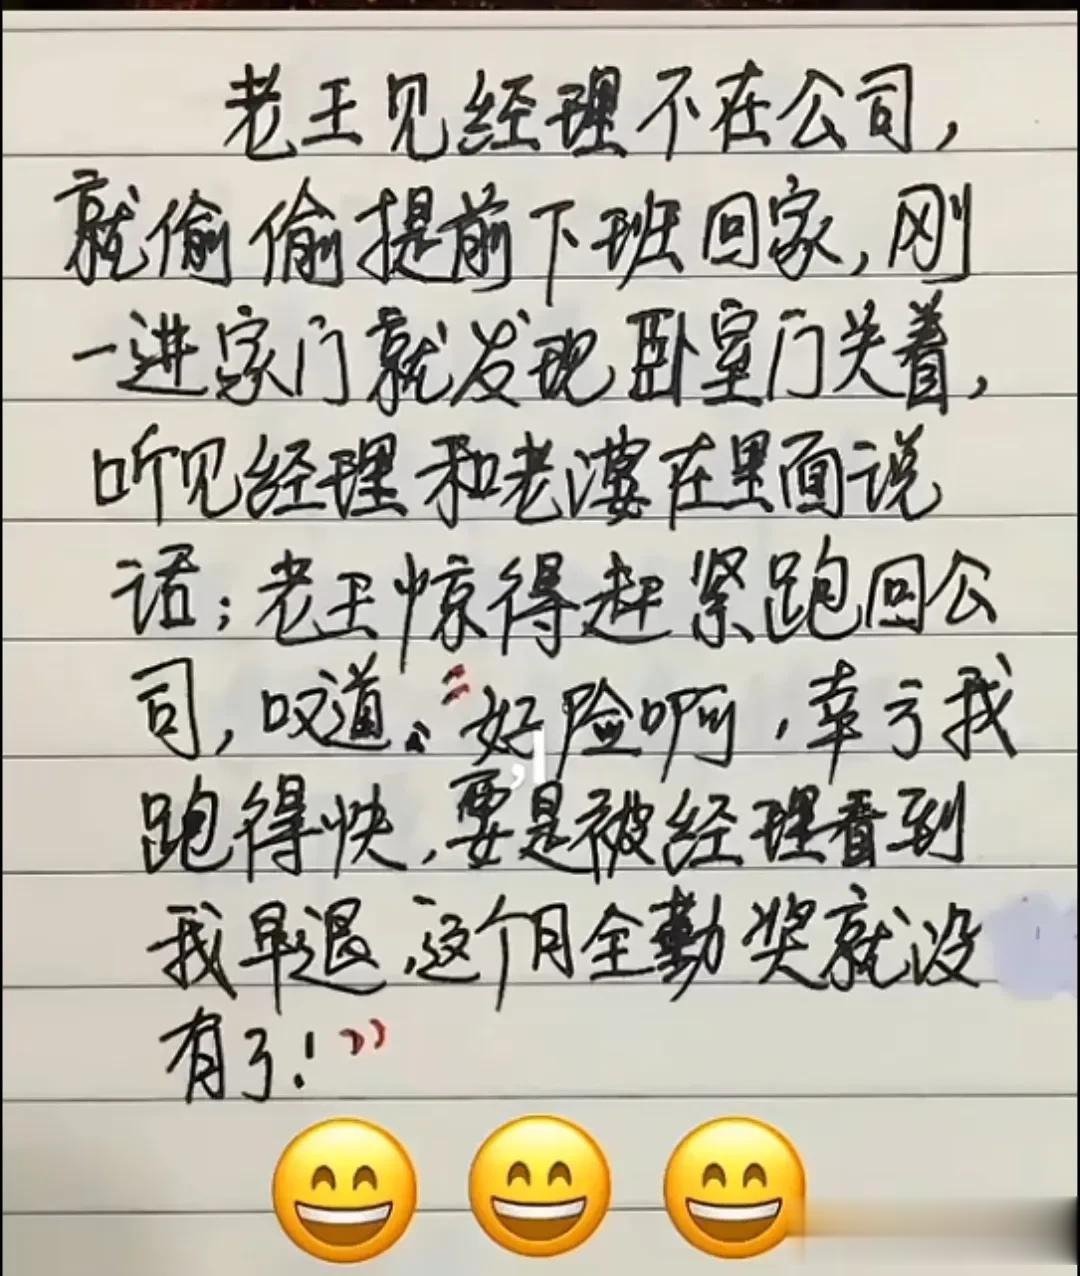 老王见经理不在公司，
就偷偷提前下班回家，刚
一进家门就发现卧室门关着，
听见经理和老婆在里面说
话；老王惊得赶紧跑回公
司，叹道、“好险啊，幸亏我
跑得快，要是被经理看到
我早退，这个月全勤奖就没
有了！”